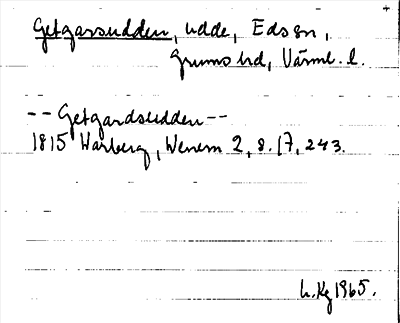 Getgarsudden, udde, Eds sn,
Grums hd, Värml. l.
-- Getgardsudden --
1815 Warberg, Wenern 2, s. 17, 243.
L.Kg 1965.